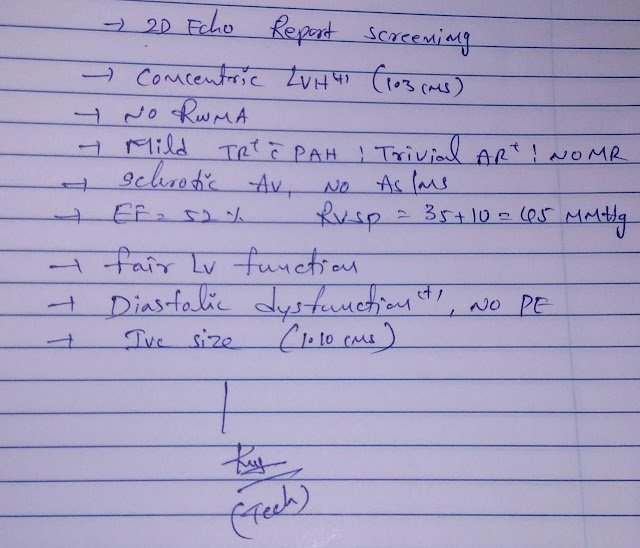 → 2D Echo Report screening
→ Concentric LVH (+) (1.03 cms)
→ NO RWMA
→ Mild TR+ c̄ PAH ; Trivial AR+ ; NO MR
→ Sclerotic AV, NO AS/MS
→ EF = 52 % RVSP = 35+10 = 45 MMHg
→ fair LV function
→ Diastolic dysfunction (+), NO PE
→ IVC size (1.10 cms)
(Tech)